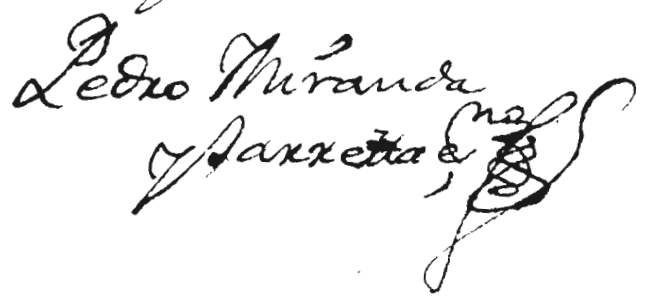 Pedro Miranda
y Barretta esno